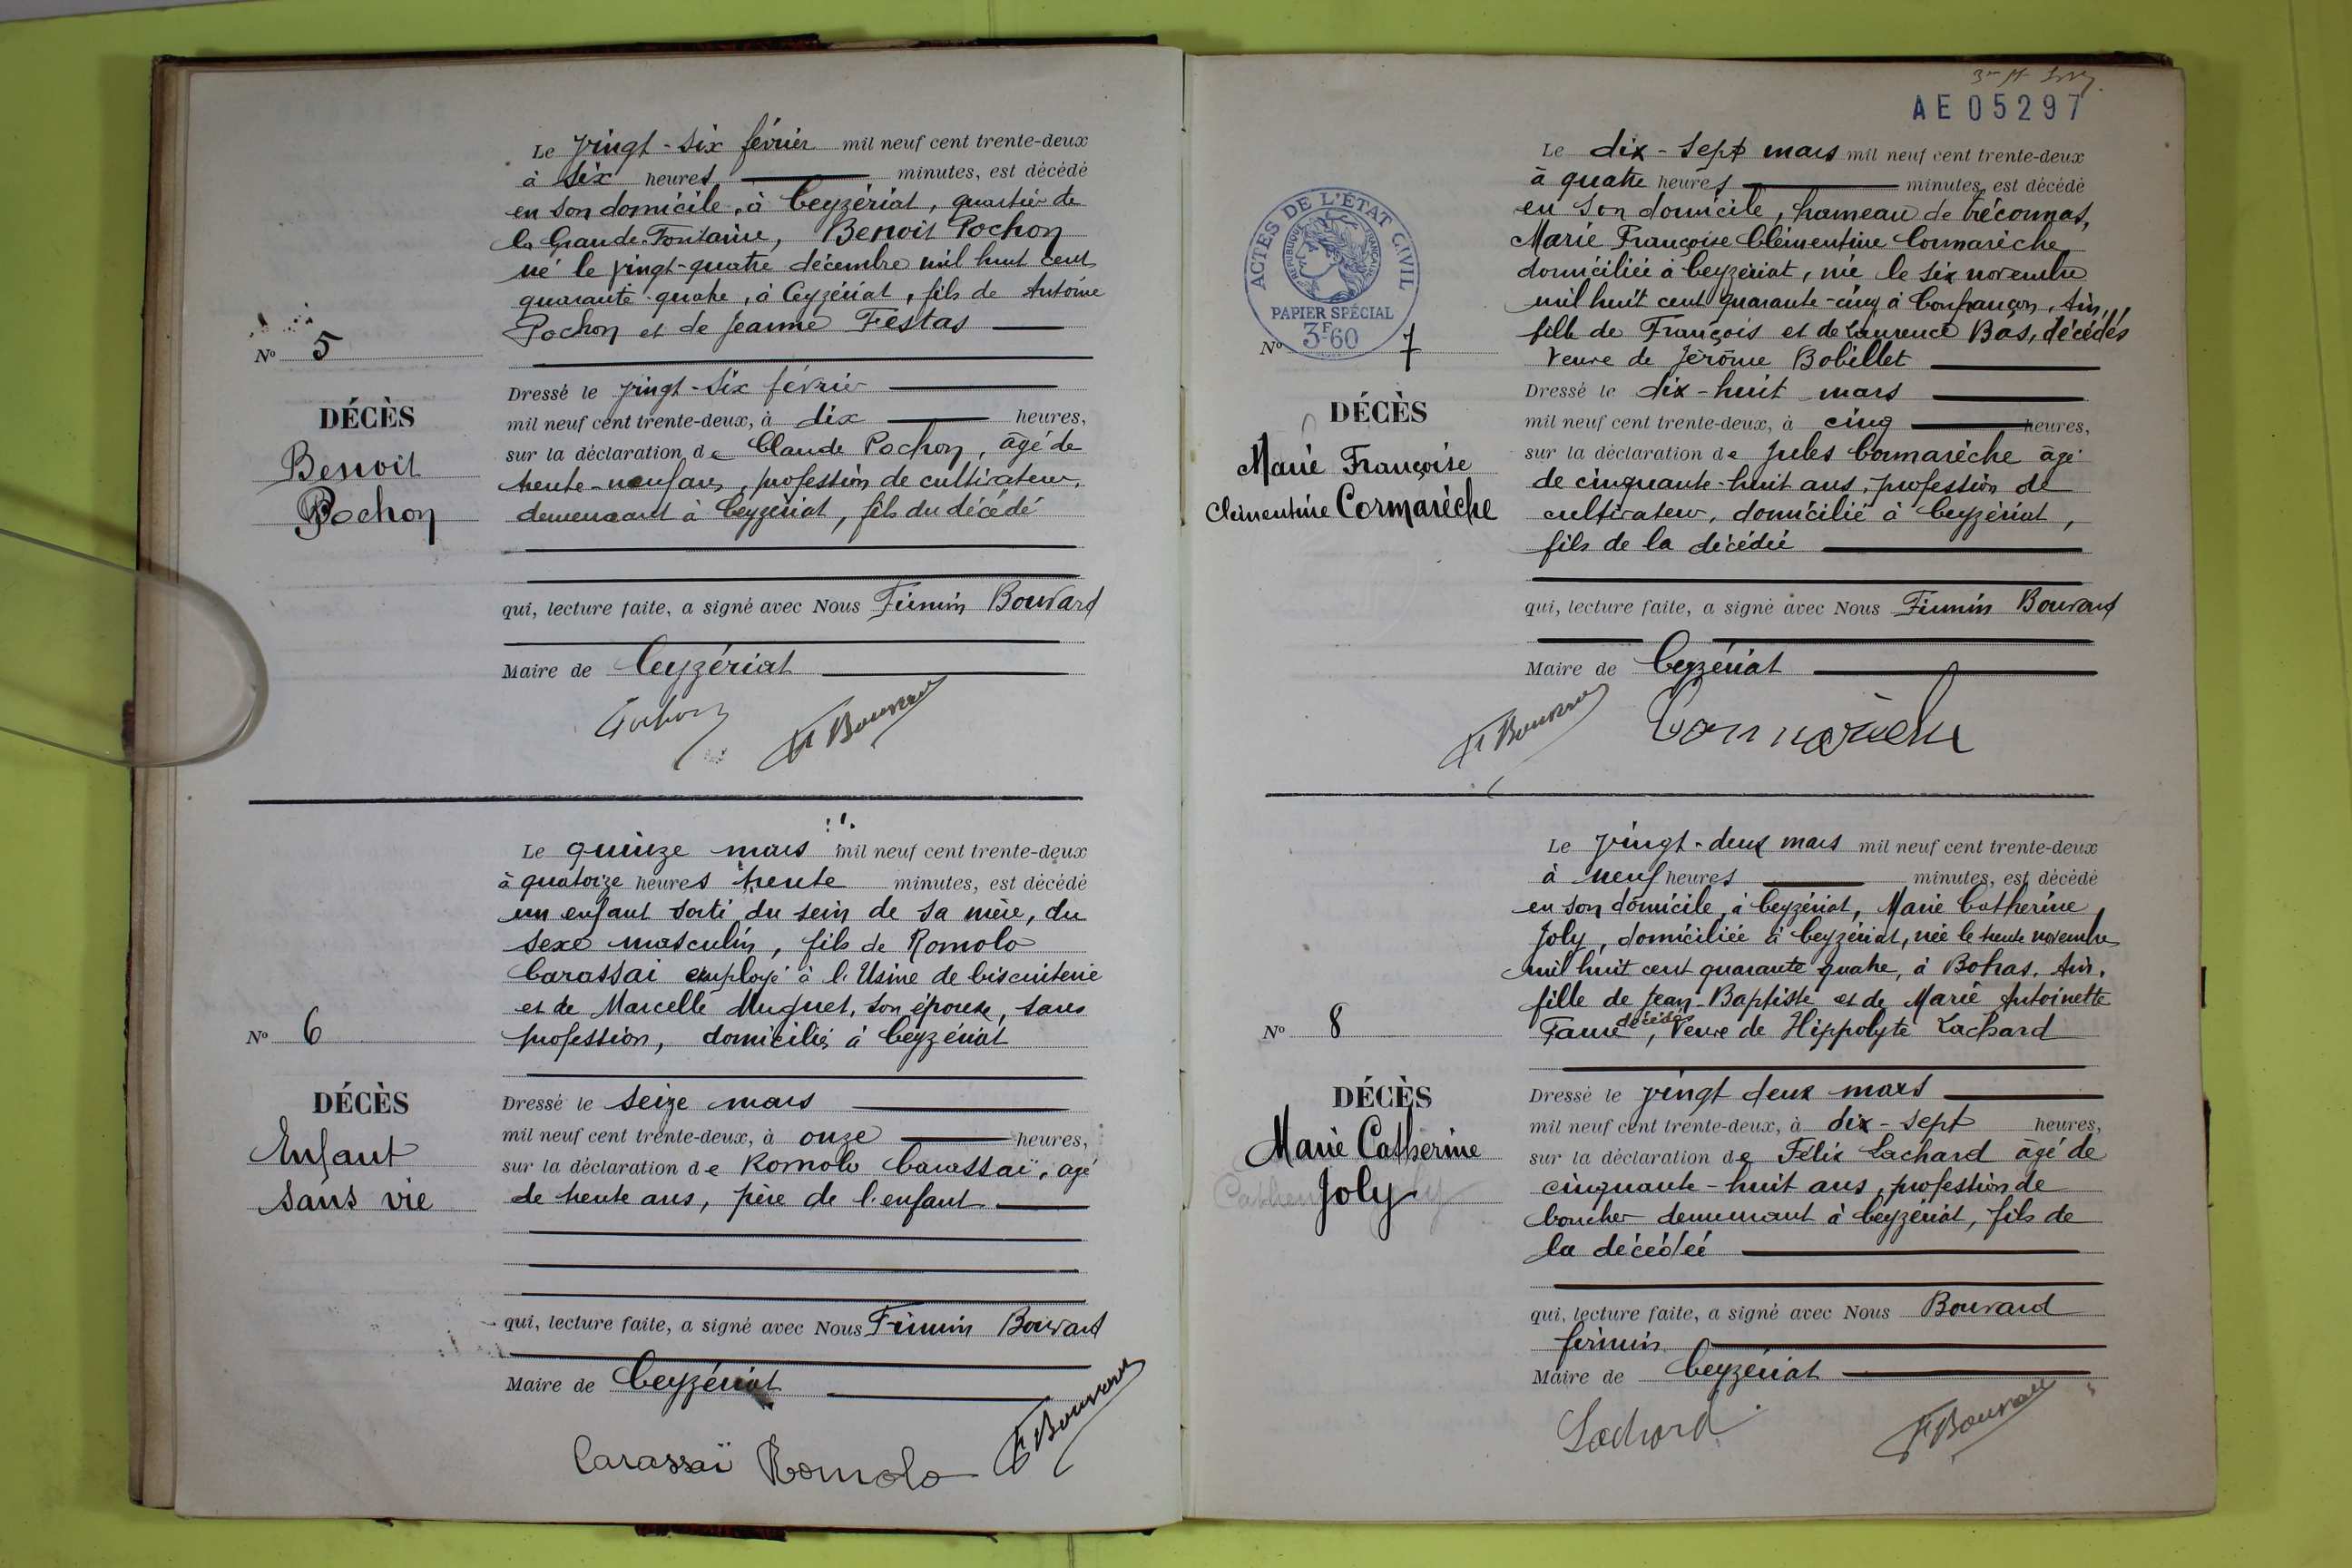 Le vingt-six février mil neuf cent trente-deux
à six heures minutes, est décédé
en son domicile, à Ceyzériat, quartier de
la Grande Fontaine, Benoit Pochon
né le vingt-quatre décembre mil huit cent
quarante-quatre, à Ceyzériat, fils de Antoine
Pochon et de Jeanne Festas
N° 5
DÉCÈS
Benoit
Pochon
Dressé le vingt-six février
mil neuf cent trente-deux, à dix heures,
sur la déclaration de Claude Pochon, âgé de
trente-neuf ans, profession de cultivateur,
demeurant à Ceyzériat, fils du décédé
qui, lecture faite, a signé avec Nous Firmin Bouvard
Maire de Ceyzériat
Pochon F Bouvard
Le quinze mars mil neuf cent trente-deux
à quatorze heures trente minutes, est décédé
un enfant sorti du sein de sa mère, du
sexe masculin, fils de Romolo
Carassai employé à l'Usine de biscuiterie
et de Marcelle Muguet, son épouse, sans
profession, domiciliés à Ceyzériat
N° 6
DÉCÈS
Enfant
sans vie
Dressé le seize mars
mil neuf cent trente-deux, à onze heures,
sur la déclaration de Romolo Carassaï, agé
de trente ans, père de l'enfant
qui, lecture faite, a signé avec Nous Firmin Bouvard
Maire de Ceyzériat
Carassaï Romolo F Bouvard
AE 05297
Le dix-sept mars mil neuf cent trente-deux
à quatre heures minutes, est décédé
en son domicile, hameau de Tréconnas,
Marie Françoise Clémentine Cormarèche
domiciliée à Ceyzériat, née le six novembre
mil huit cent quarante-cinq à Confrançon, Ain,
fille de François et de Laurence Bas, décédés
Veuve de Jérôme Bobillet
ACTES DE L'ÉTAT CIVIL
RÉPUBLIQUE FRANÇAISE
PAPIER SPÉCIAL
3F60
N° 7
DÉCÈS
Marie Françoise
Clémentine Cormarèche
Dressé le dix-huit mars
mil neuf cent trente-deux, à cinq heures,
sur la déclaration de Jules Cormarèche âgé
de cinquante-huit ans, profession de
cultivateur, domicilié à Ceyzériat,
fils de la décédée
qui, lecture faite, a signé avec Nous Firmin Bouvard
Maire de Ceyzériat
F Bouvard Cormarèche
Le vingt-deux mars mil neuf cent trente-deux
à neuf heures minutes, est décédé
en son domicile, à Ceyzériat, Marie Catherine
Joly, domiciliée à Ceyzériat, née le trente novembre
mil huit cent quarante quatre, à Bohas, Ain,
fille de Jean-Baptiste et de Marie Antoinette
Faure décédés, Veuve de Hippolyte Lachard
N° 8
DÉCÈS
Marie Catherine
Joly
Dressé le vingt deux mars
mil neuf cent trente-deux, à dix-sept heures,
sur la déclaration de Félix Lachard âgé de
cinquante-huit ans, profession de
boucher demeurant à Ceyzériat, fils de
la décédée
qui, lecture faite, a signé avec Nous Bouvard
firmin
Maire de Ceyzériat
Lachard F Bouvard